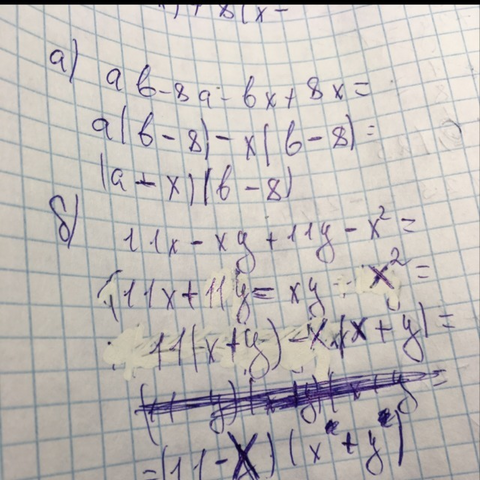 + 8(x -
а) ab - 8a - bx + 8x =
a(b - 8) - x(b - 8) =
(a - x)(b - 8)
б) 11x - xy + 11y - x² =
11x + 11y = xy - x² =
11(x + y) - x(x + y) =
= (11 - x)(x + y)